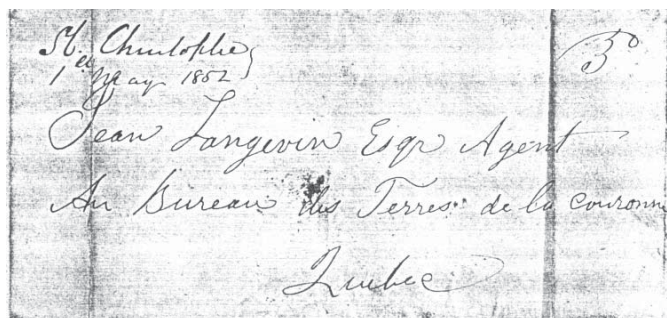 St. Christophe
1er May 1852
5
Jean Langevin Esqr Agent
Au Bureau des Terres de la couronne
Quebec